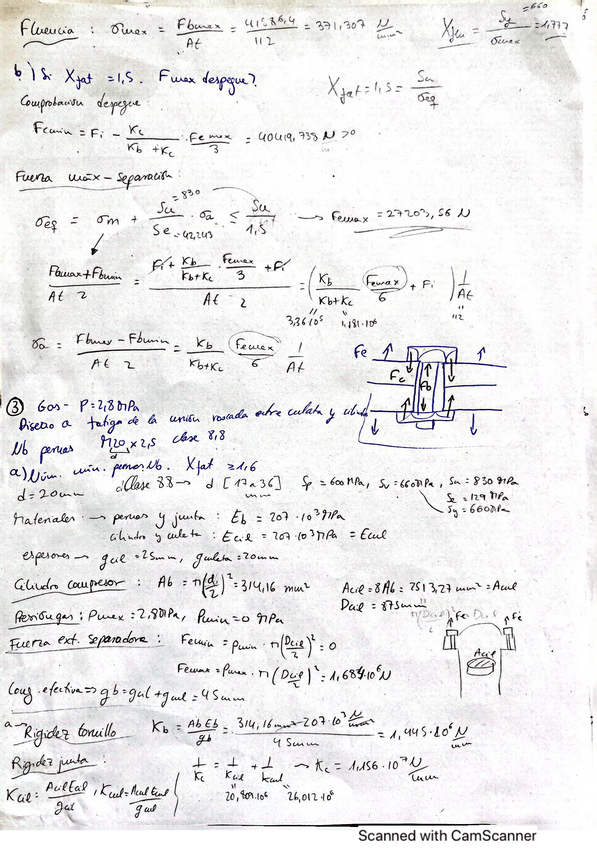 Fluencia : σmax = Fbmax/At = 41586,4/112 = 371,307 N/mm² Xflu = Sy=660/σmax = 1,777
b) Si Xfat = 1,5. Fmax despegue?
Xfat = 1,5 = Su/σeq
Comprobación despegue
Fcmin = Fi - Kc/(Kb+Kc) · Femax/3 = 40419,738 N > 0
Fuerza máx-separación:
σeq = σm + Su=830/Se=42,243 · σa ≤ Su/1,5 → Femax = 27203,56 N
(Fbmax + Fbmin)/(At 2) = (Fi + Kb/(Kb+Kc) · Femax/3 + Fi)/(At 2) = (Kb/(Kb+Kc) Femax/6 + Fi) 1/At
112
σa = (Fbmax - Fbmin)/(At 2) = Kb/(Kb+Kc) Femax/6 1/At
Fe
Fc Fb
③ Gas - P = 2,8 MPa
Diseño a fatiga de la unión roscada entre culata y cilindro
Nb pernos M20 x 2,5 clase 8,8
d
a) Núm. mín. pernos Nb. Xfat ≥ 1,6
d = 20mm Clase 8.8 → d [17 a 36] mm Sp = 600 MPa, Sy = 660 MPa, Su = 830 MPa
Se = 129 MPa
Sy = 660 MPa
Materiales: → pernos y junta : Eb = 207·10³ MPa
cilindro y culata : Ecil = 207·10³ MPa = Ecul
espesores → gcil = 25mm, gculata = 20mm
Cilindro compresor : Ab = π(d/2)² = 314,16 mm² Acil = 8Ab = 2513,27 mm² = Acul
Dcil = 875mm
Presión gas: Pmax = 2,8 MPa, Pmin = 0 MPa
Fuerza ext. separadora : Femin = pmin · π(Dcil/2)² = 0
Femax = Pmax · π(Dcil/2)² = 1,684·10⁶ N
Fe Fe
Acil
Long. efectiva ⇒ gb = gcil + gcul = 45mm
a → Rigidez tornillo Kb = Ab Eb/gb = 314,16 mm² · 207·10³ N/mm² / 45mm = 1,445·10⁶ N/mm
Rigidez junta : 1/Kc = 1/Kcil + 1/Kcul → Kc = 1,156·10⁷ N/mm
Kcil = Acil Ecil/gcil , Kcul = Acul Ecul/gcul 20,809·10⁶ 26,012·10⁶
Scanned with CamScanner